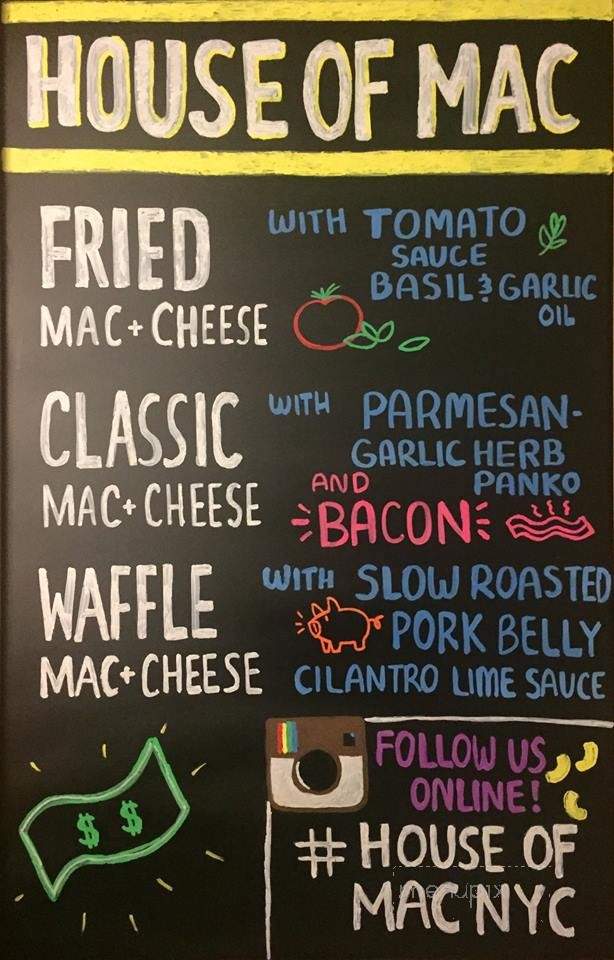 HOUSE OF MAC
FRIED
MAC + CHEESE
WITH TOMATO
SAUCE
BASIL & GARLIC
OIL
CLASSIC
MAC + CHEESE
WITH PARMESAN-
GARLIC HERB
PANKO
AND
BACON
WAFFLE
MAC + CHEESE
WITH SLOW ROASTED
PORK BELLY
CILANTRO LIME SAUCE
$ $
FOLLOW US
ONLINE!
# HOUSE OF
MAC NYC
menupix